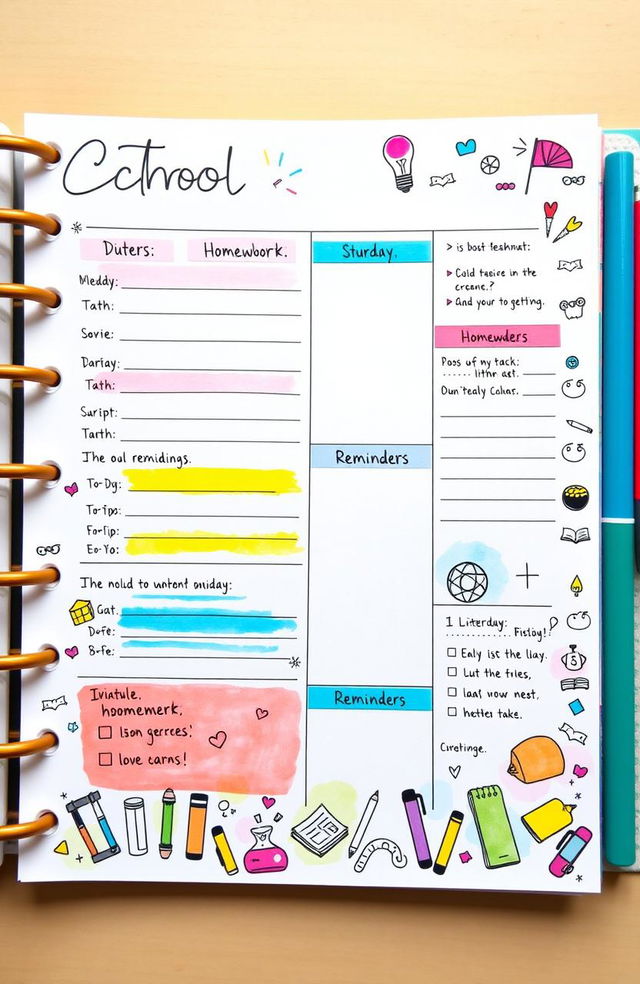 Cctrool
Duters:
Homewbork.
Meddy:
Tath:
Sovie:
Darfay:
Tath:
Suript:
Tarth:
The oul remidings.
To-Dy:
To-fpo:
For-fip:
Eo-Yo:
The nolid to untont oniday:
Gat.
Dofe:
B-fe:
Iviatule.
hopmemerk,
Ison gerces!
love carns!
Sturday.
Reminders
Reminders
> is bost feshnut:
Cold tasice in the
crcane.?
And your to getting.
Homewders
Poss of my tack:
lithr ast.
Dun'tealy Cokar.
I Literday:
Fistoy!
Ealy ist the liay.
Lut the fries,
last now nest,
hettes take.
Cirretinge.